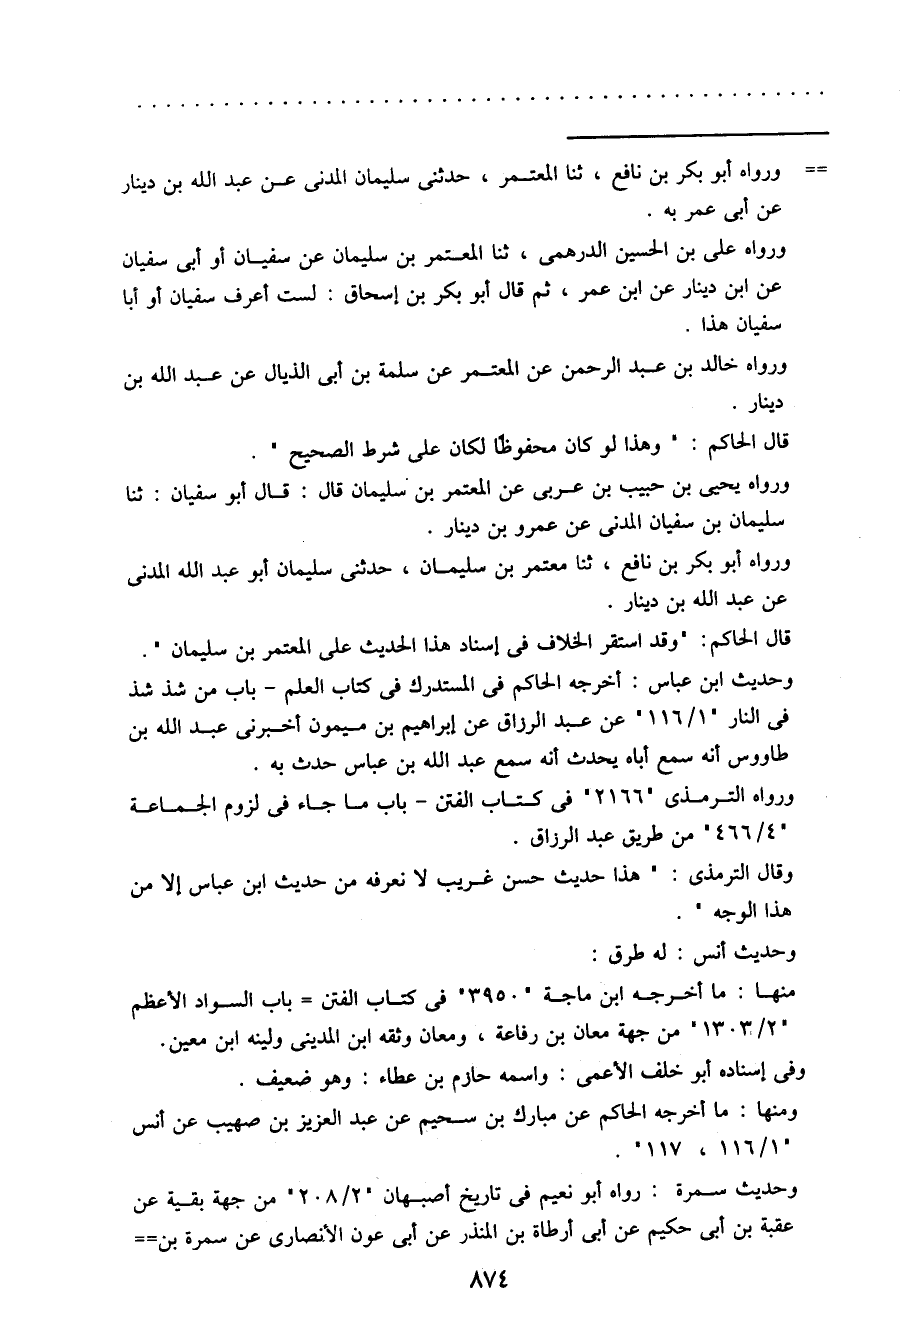 == ورواه أبو بكر بن نافع ، ثنا المعتمر ، حدثنى سليمان المدنى عن عبد الله بن دينار
عن أبى عمر به .
ورواه على بن الحسين الدرهمى ، ثنا المعتمر بن سليمان عن سفيان أو أبى سفيان
عن ابن دينار عن ابن عمر ، ثم قال أبو بكر بن إسحاق : لست أعرف سفيان أو أبا
سفيان هذا .
ورواه خالد بن عبد الرحمن عن المعتمر عن سلمة بن أبى الذيال عن عبد الله بن
دينار .
قال الحاكم : " وهذا لو كان محفوظًا لكان على شرط الصحيح " .
ورواه يحيى بن حبيب بن عربى عن المعتمر بن سليمان قال : قال أبو سفيان : ثنا
سليمان بن سفيان المدنى عن عمرو بن دينار .
ورواه أبو بكر بن نافع ، ثنا معتمر بن سليمان ، حدثنى سليمان أبو عبد الله المدنى
عن عبد الله بن دينار .
قال الحاكم: "وقد استقر الخلاف فى إسناد هذا الحديث على المعتمر بن سليمان " .
وحديث ابن عباس : أخرجه الحاكم فى المستدرك فى كتاب العلم - باب من شذ شذ
فى النار "١١٦/١" عن عبد الرزاق عن إبراهيم بن ميمون أخبرنى عبد الله بن
طاووس أنه سمع أباه يحدث أنه سمع عبد الله بن عباس حدث به .
ورواه الترمذى "٢١٦٦" فى كتاب الفتن - باب ما جاء فى لزوم الجماعة
"٤٦٦/٤" من طريق عبد الرزاق .
وقال الترمذى : " هذا حديث حسن غريب لا نعرفه من حديث ابن عباس إلا من
هذا الوجه " .
وحديث أنس : له طرق :
منها : ما أخرجه ابن ماجة "٣٩٥٠" فى كتاب الفتن = باب السواد الأعظم
"١٣٠٣/٢" من جهة معان بن رفاعة ، ومعان وثقه ابن المدينى ولينه ابن معين.
وفى إسناده أبو خلف الأعمى : واسمه حازم بن عطاء : وهو ضعيف .
ومنها : ما أخرجه الحاكم عن مبارك بن سحيم عن عبد العزيز بن صهيب عن أنس
"١١٦/١ ، ١١٧" .
وحديث سمرة : رواه أبو نعيم فى تاريخ أصبهان "٢٠٨/٢" من جهة بقية عن
عقبة بن أبى حكيم عن أبى أرطاة بن المنذر عن أبى عون الأنصارى عن سمرة بن==
٨٧٤